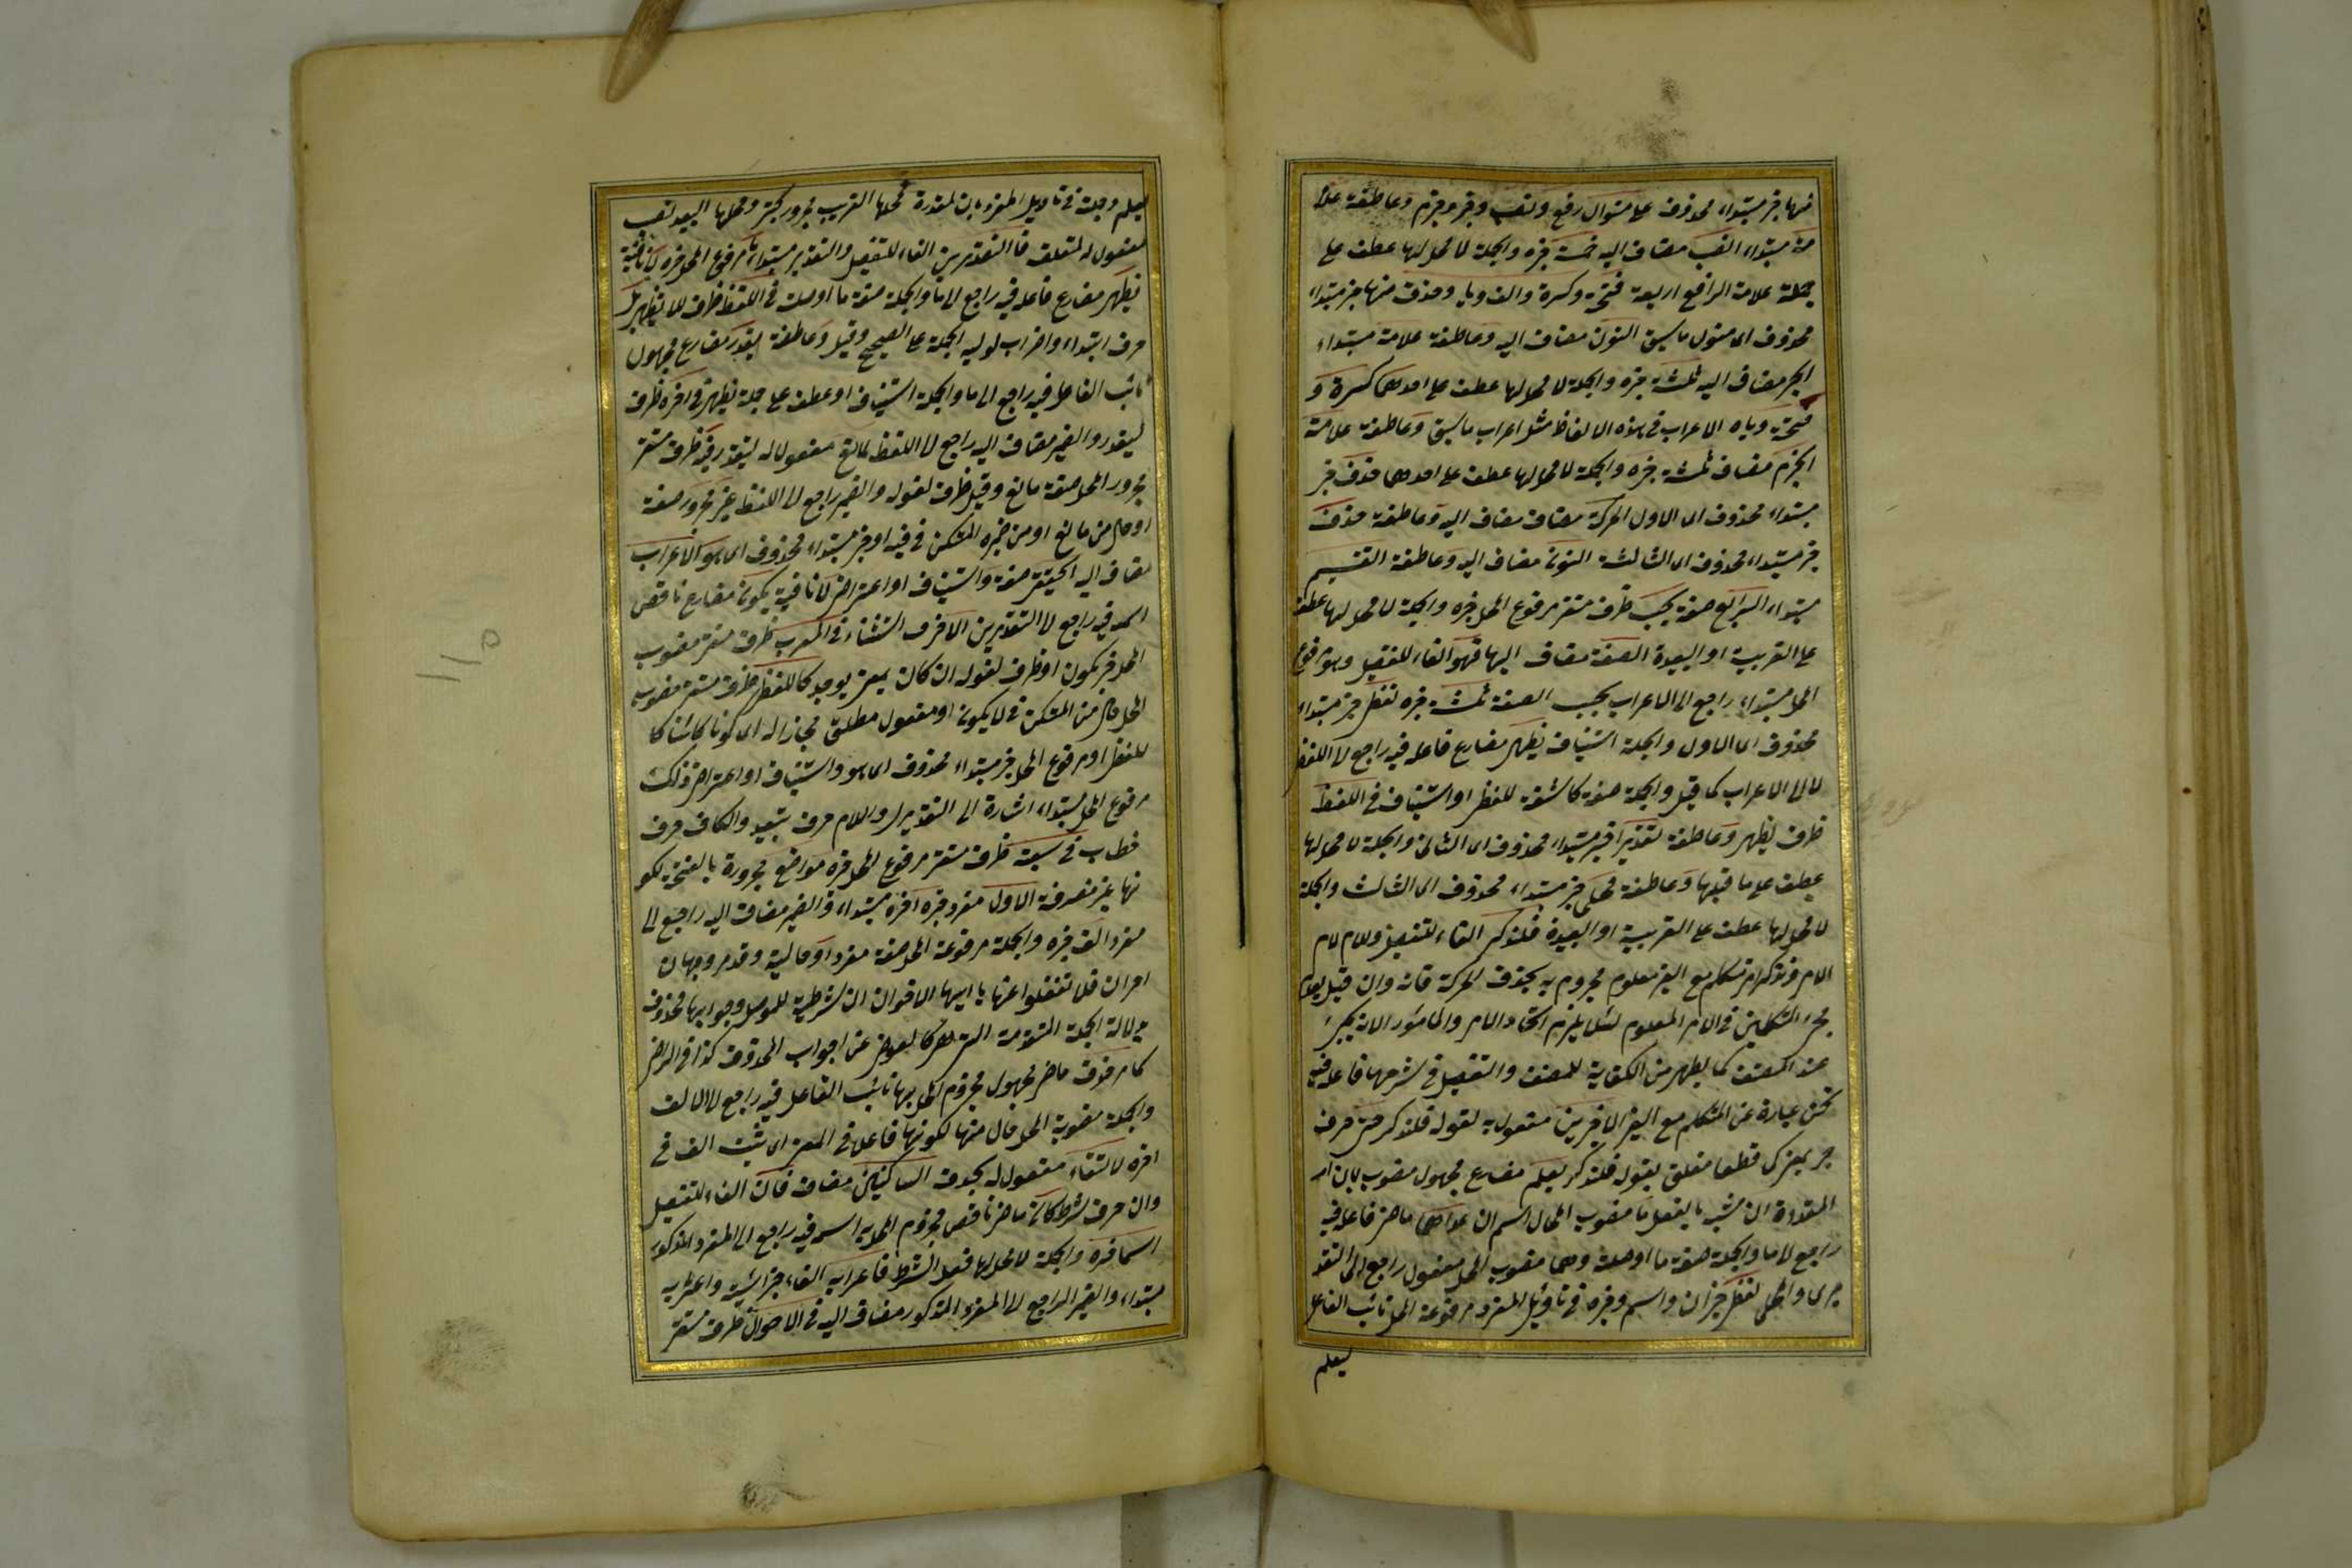 منها خبر مبتداء محذوف على منوال رفع ونصب وجر وجزم وعاطفة علا
مة مبتداء النصب مضاف اليه خمسة خبره والجملة لا محل لها عطف على
جملة علامة الرافع اربعة فتحة وكسرة والف ويا وحذف منها خبر مبتداء
محذوف اى منول ما سبق النون مضاف اليه وعاطفة علامة مبتداء
الجر مضاف اليه ثلثة خبره والجملة لا محل لها عطف على احدهما كسرة و
فتحة وياء الاعراب فى هذه الالفاظ مثل اعراب ما سبق وعاطفة علامة
الجزم مضاف ثلثة خبره والجملة لا محل لها عطف على احدهما حذف خبر
مبتداء محذوف اى الاول الحركة مضاف مضاف اليه وعاطفة حذف
خبر مبتداء محذوف اى الثالثة النون مضاف اليه وعاطفة التقسيم
مبتداء الرابع صفة بحسب ظرف مستقر مرفوع المحل خبره والجملة لا محل لها عطف
على القريبة او البعيدة الصفة مضاف اليها فهو الفاء للتفصيل وهو مرفوع
المحل مبتداء راجع الى الاعراب بحسب الصفة ثلثة خبره لفظى خبر مبتداء
محذوف اى الاول والجملة استيناف يظهر مضارع فاعله فيه راجع الى اللفظ
لا الى الاعراب كما قيل والجملة صفة كاشفة للفظى او استيناف فى اللفظ
ظرف يظهر وعاطفة تقديرا خبر مبتداء محذوف اى الثانى والجملة لا محل لها
عطف على ما قبلها وعاطفة محلى خبر مبتداء محذوف اى الثالث والجملة
لا محل لها عطف على القريبة او البعيدة فلنذكر الفاء للتفصيل ولام لام
الامر ونذكر امر متكلم مع الغير معلوم مجزوم به بحذف الحركة فانه وان قيل بعدم
مجئ المتكلمين فى الامر المعلوم لئلا يلزم اتحاد الامر والمأمور الا انه يجئ
عند المصنف كما يظهر من الكفاية للمصنف والتفصيل فى شرحها فاعله فيه
نحن عبارة عن المتكلم مع الغير الاخيرين مفعول به لقوله فلنذكر حتى حرف
جر بمعنى كى قطعا متعلق بقوله فلنذكر يعلم مضارع مجهول منصوب بان
المقدرة ان مشبه بالفعل ما منصوب المحل اسم ان عداهما ماض فاعله فيه
راجع الى ما والجملة صفة ما او صلة وهما منصوب المحل مفعول راجع الى التقد
يرى والمحلى لفظى خبر ان واسم وخبره فى تأويل المفرد مرفوعة المحل نائب الفاعل
ليعلم
ليعلم وجملة فى تاويل المفرد بان المقدرة محلها القريب مجرور بحتى ومحلها البعيد نصب
مفعول له لمتعلق فالتقديرى الفاء للتفصيل والتقدير مبتداء ما مرفوع المحل خبره لا نافية
يظهر مضارع فاعله فيه راجع الى ما والجملة صفة ما او صلة فى اللفظ ظرف للا يظهر بل
حرف ابتداء واضراب لوليه الجملة على الصحيح وقيل وعاطفة يقدر مضارع مجهول
نائب الفاعل فيه راجع الى ما والجملة استيناف او عطف على جملة يظهر فى اخره ظرف
ليقدر والضمير مضاف اليه راجع الى اللفظ لمانع مفعول له ليقدر فيه ظرف مستقر
مجرور المحل صفة مانع وقيل ظرف لغو له والضمير راجع الى اللفظ غير مجرور صفة
او حال من مانع او من ضميره المتكن فى فيه او خبر مبتداء محذوف اى هو الاعراب
مضاف اليه الحقيقى صفة واستيناف او اعتراض لا نافية يكون مضارع ناقص
اسمه فيه راجع الى التقديرى الا حرف استثناء فى المعرب ظرف مستقر منصوب
المحل خبر يكون او ظرف لغو له ان كان بمعنى يوجد كاللفظى ظرف مستقر منصوب
المحل حال من المتكن فى لا يكون او مفعول مطلق مجازا له اى كونا كائنا كا
للفظى او مرفوع المحل خبر مبتداء محذوف اى هو واستيناف او اعتراض ذلك
مرفوع المحل مبتداء اشارة الى التقديرى واللام حرف تبعيد والكاف حرف
خطاب فى سبعة ظرف مستقر مرفوع المحل خبره مواضع مجرورة بالفتحة لكو
نها غير منصرفة الاول مفرد خبره اخره مبتداء والضمير مضاف اليه راجع الى
مفرد الف خبره والجملة مرفوعة المحل صفة مفرد او حالية وقد مر وجهان
امران فلا تغفلوا عنها يا ايها الاخوان ان شرطية للوصل وجوابها محذوف
بدلالة الجملة المتقدمة التى هى كالعوض عن اجواب المحذوف كذا فى الرضى
كما مر حذف ماض مجهول مجزوم المحل بها نائب الفاعل فيه راجع الى الالف
والجملة منصوبة المحل حال منها لكونها فاعلا فى المعنى اى ثبت الف فى
اخره لالتقاء مفعول له بحذف الساكنين مضاف فان الفاء للتفصيل
وان حرف شرط كان ماض ناقص مجزوم المحل به اسمه فيه راجع الى المفرد المذكور
اسما خبره والجملة لا محل لها فعل الشرط فاعرابه الفاء جزائية واعرابه
مبتداء والضمير الراجع الى المفرد المذكور مضاف اليه فى الاحوال ظرف مستقر